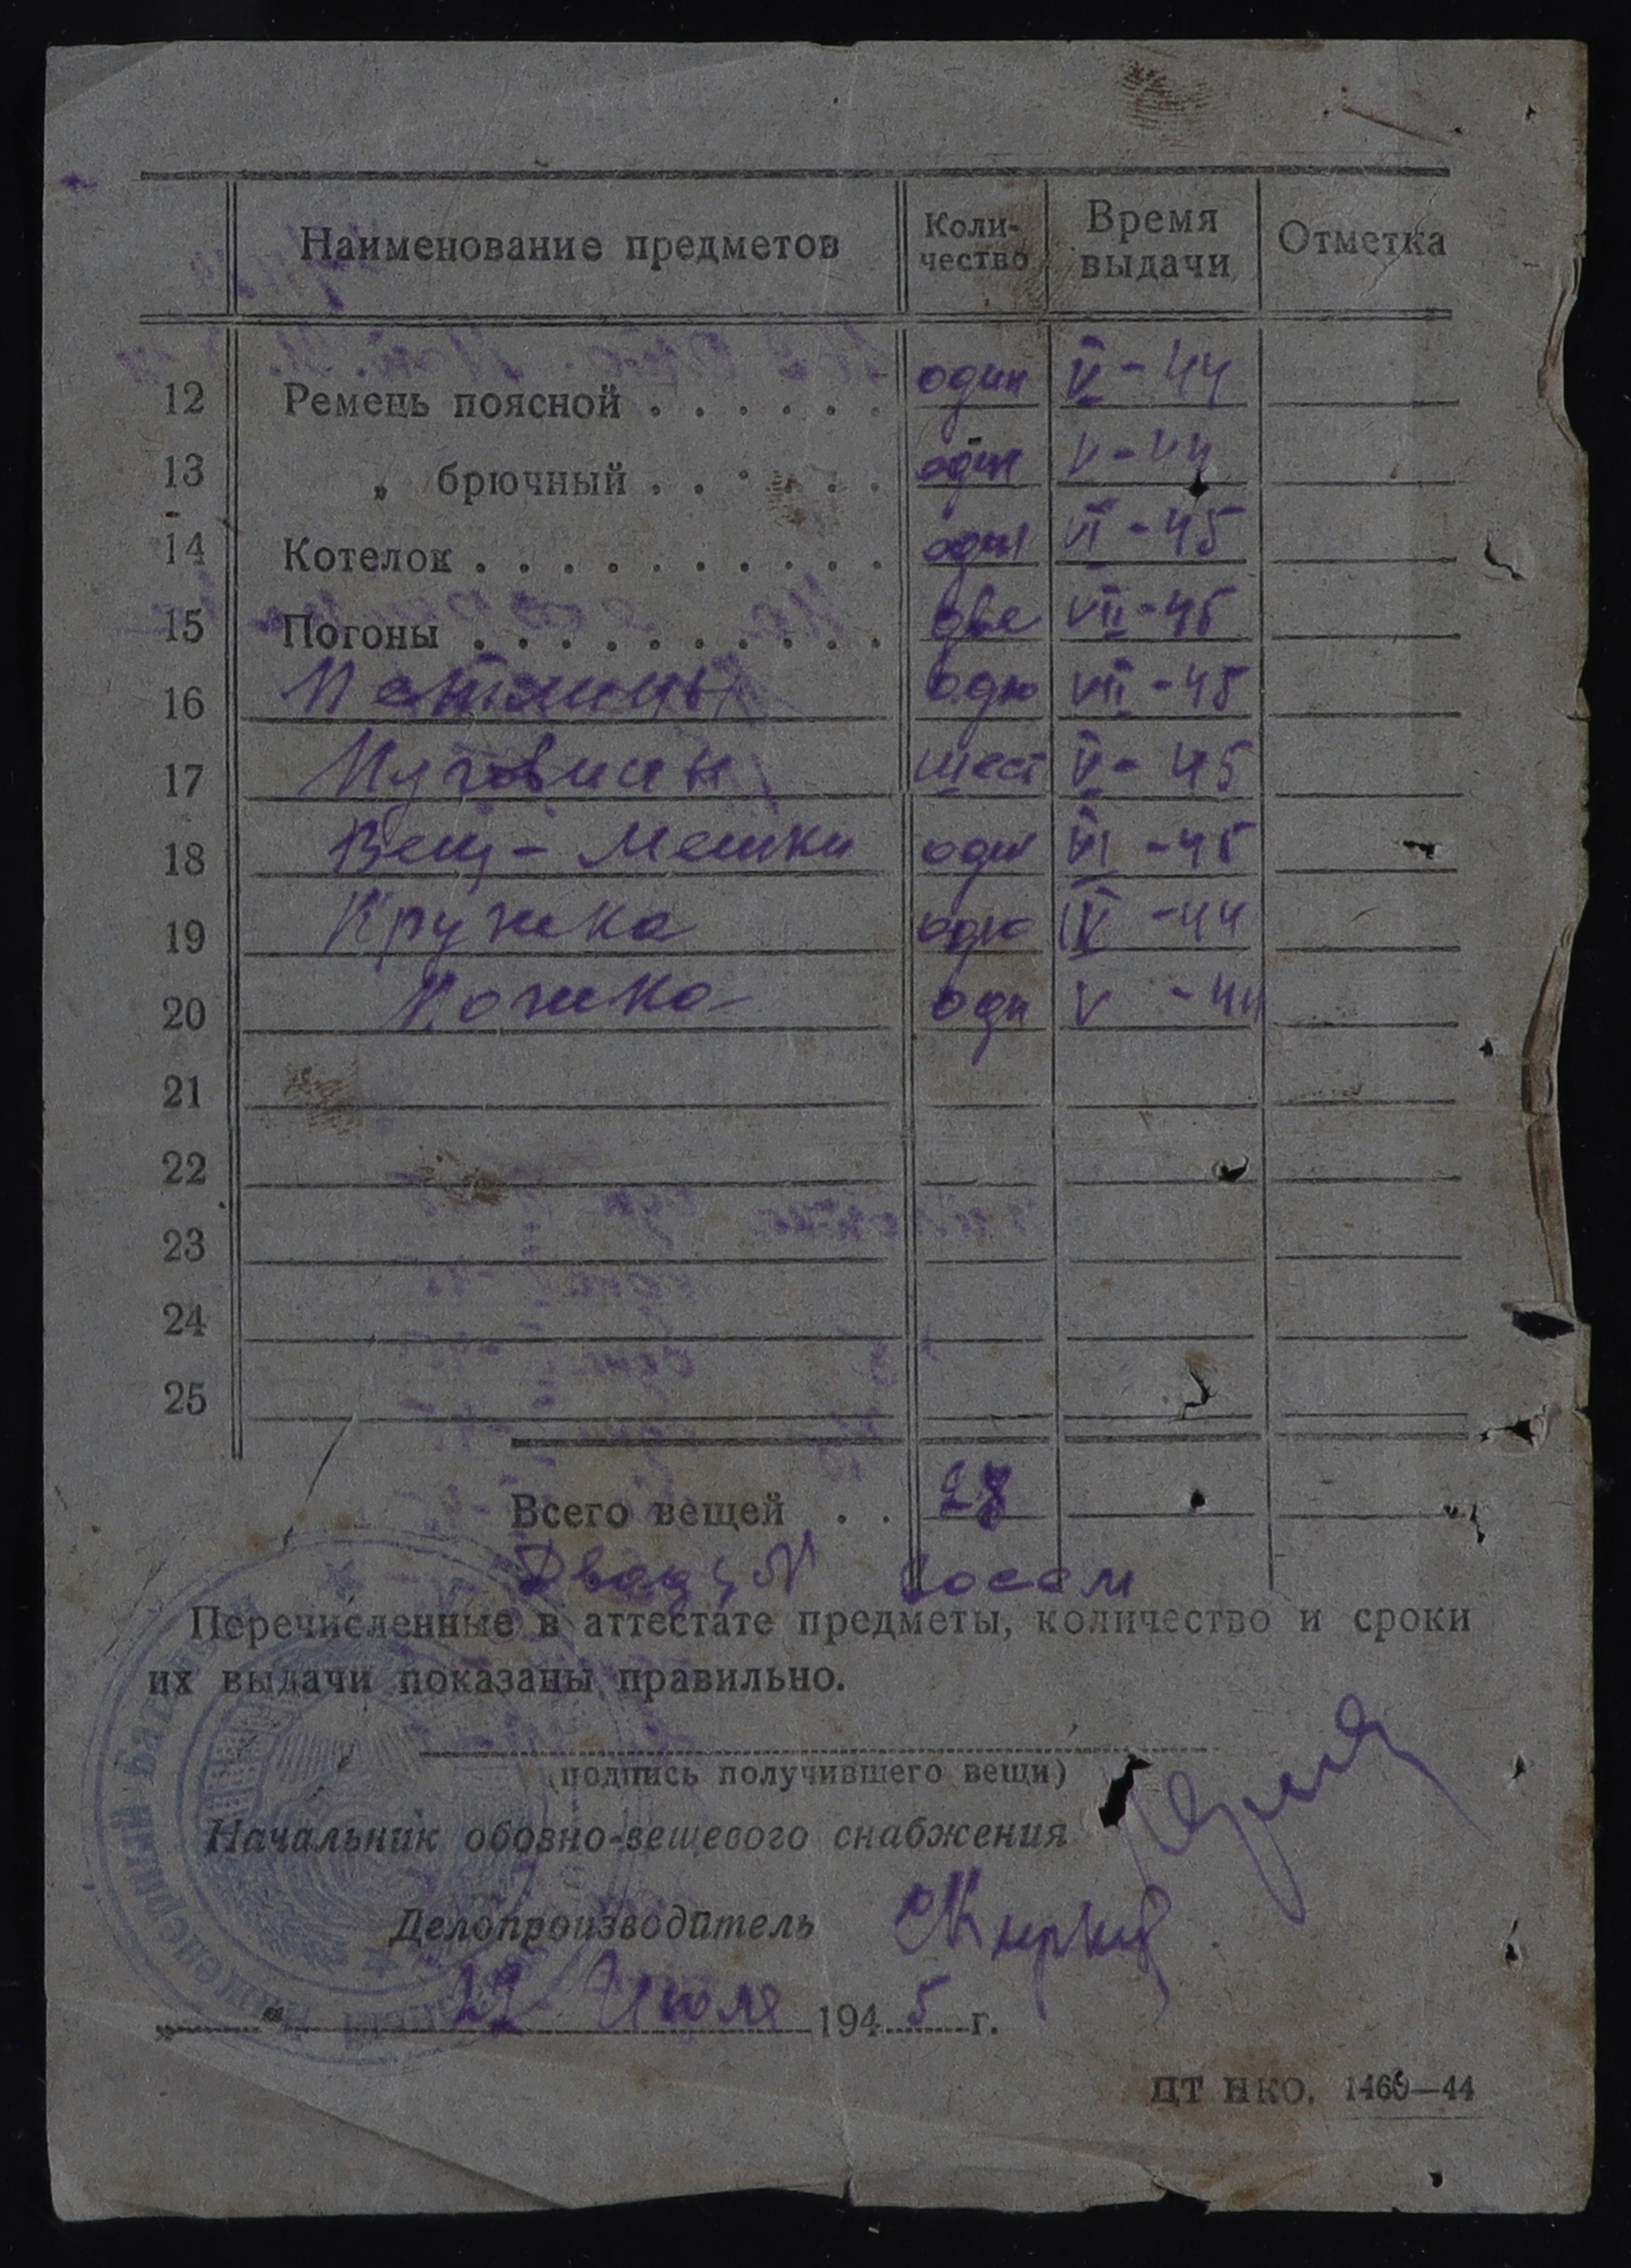 Наименование предметов Коли-чество Время выдачи Отметка
12 Ремень поясной . . . . . . один V - 44
13 „ брючный . . . . . . один V - 44
14 Котелок . . . . . . . . . . . один VI - 45
15 Погоны . . . . . . . . . . . две VII - 45
16 Петлицы одно VII - 45
17 Пуговицы шест V - 45
18 Вещ-Мешки один VI - 45
19 Кружка одно IV - 44
20 Ложка одн V - 44
21
22
23
24
25
Всего вещей . . 28
Двадцать восем
Перечисленные в аттестате предметы, количество и сроки
их выдачи показаны правильно.
(подпись получившего вещи)
Начальник обозно-вещевого снабжения
Делопроизводитель
„ “ 22 Июля 194 5 г.
ЦТ НКО. 1460—44